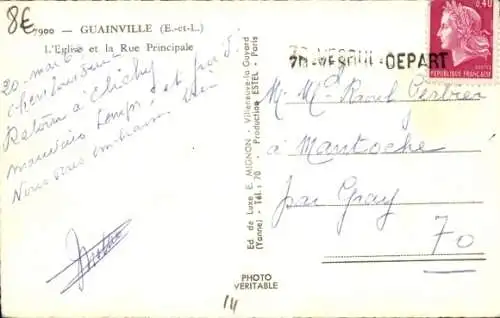 8€
7900 — GUAINVILLE (E.-et-L.)
L'Eglise et la Rue Principale
20 mai 6
Retour à Clichy
mauvais temps, et
Nous vous embrassons bien
Ed. de Luxe E. MIGNON - Villeneuve-la-Guyard
(Yonne) - Tél. : 70 - Production ESTEL - Paris
PHOTO
VERITABLE
70 VESOUL DEPART
0,40
REPUBLIQUE FRANÇAISE
M. Mme Raoul
à Mantoche
par Gray
70
14